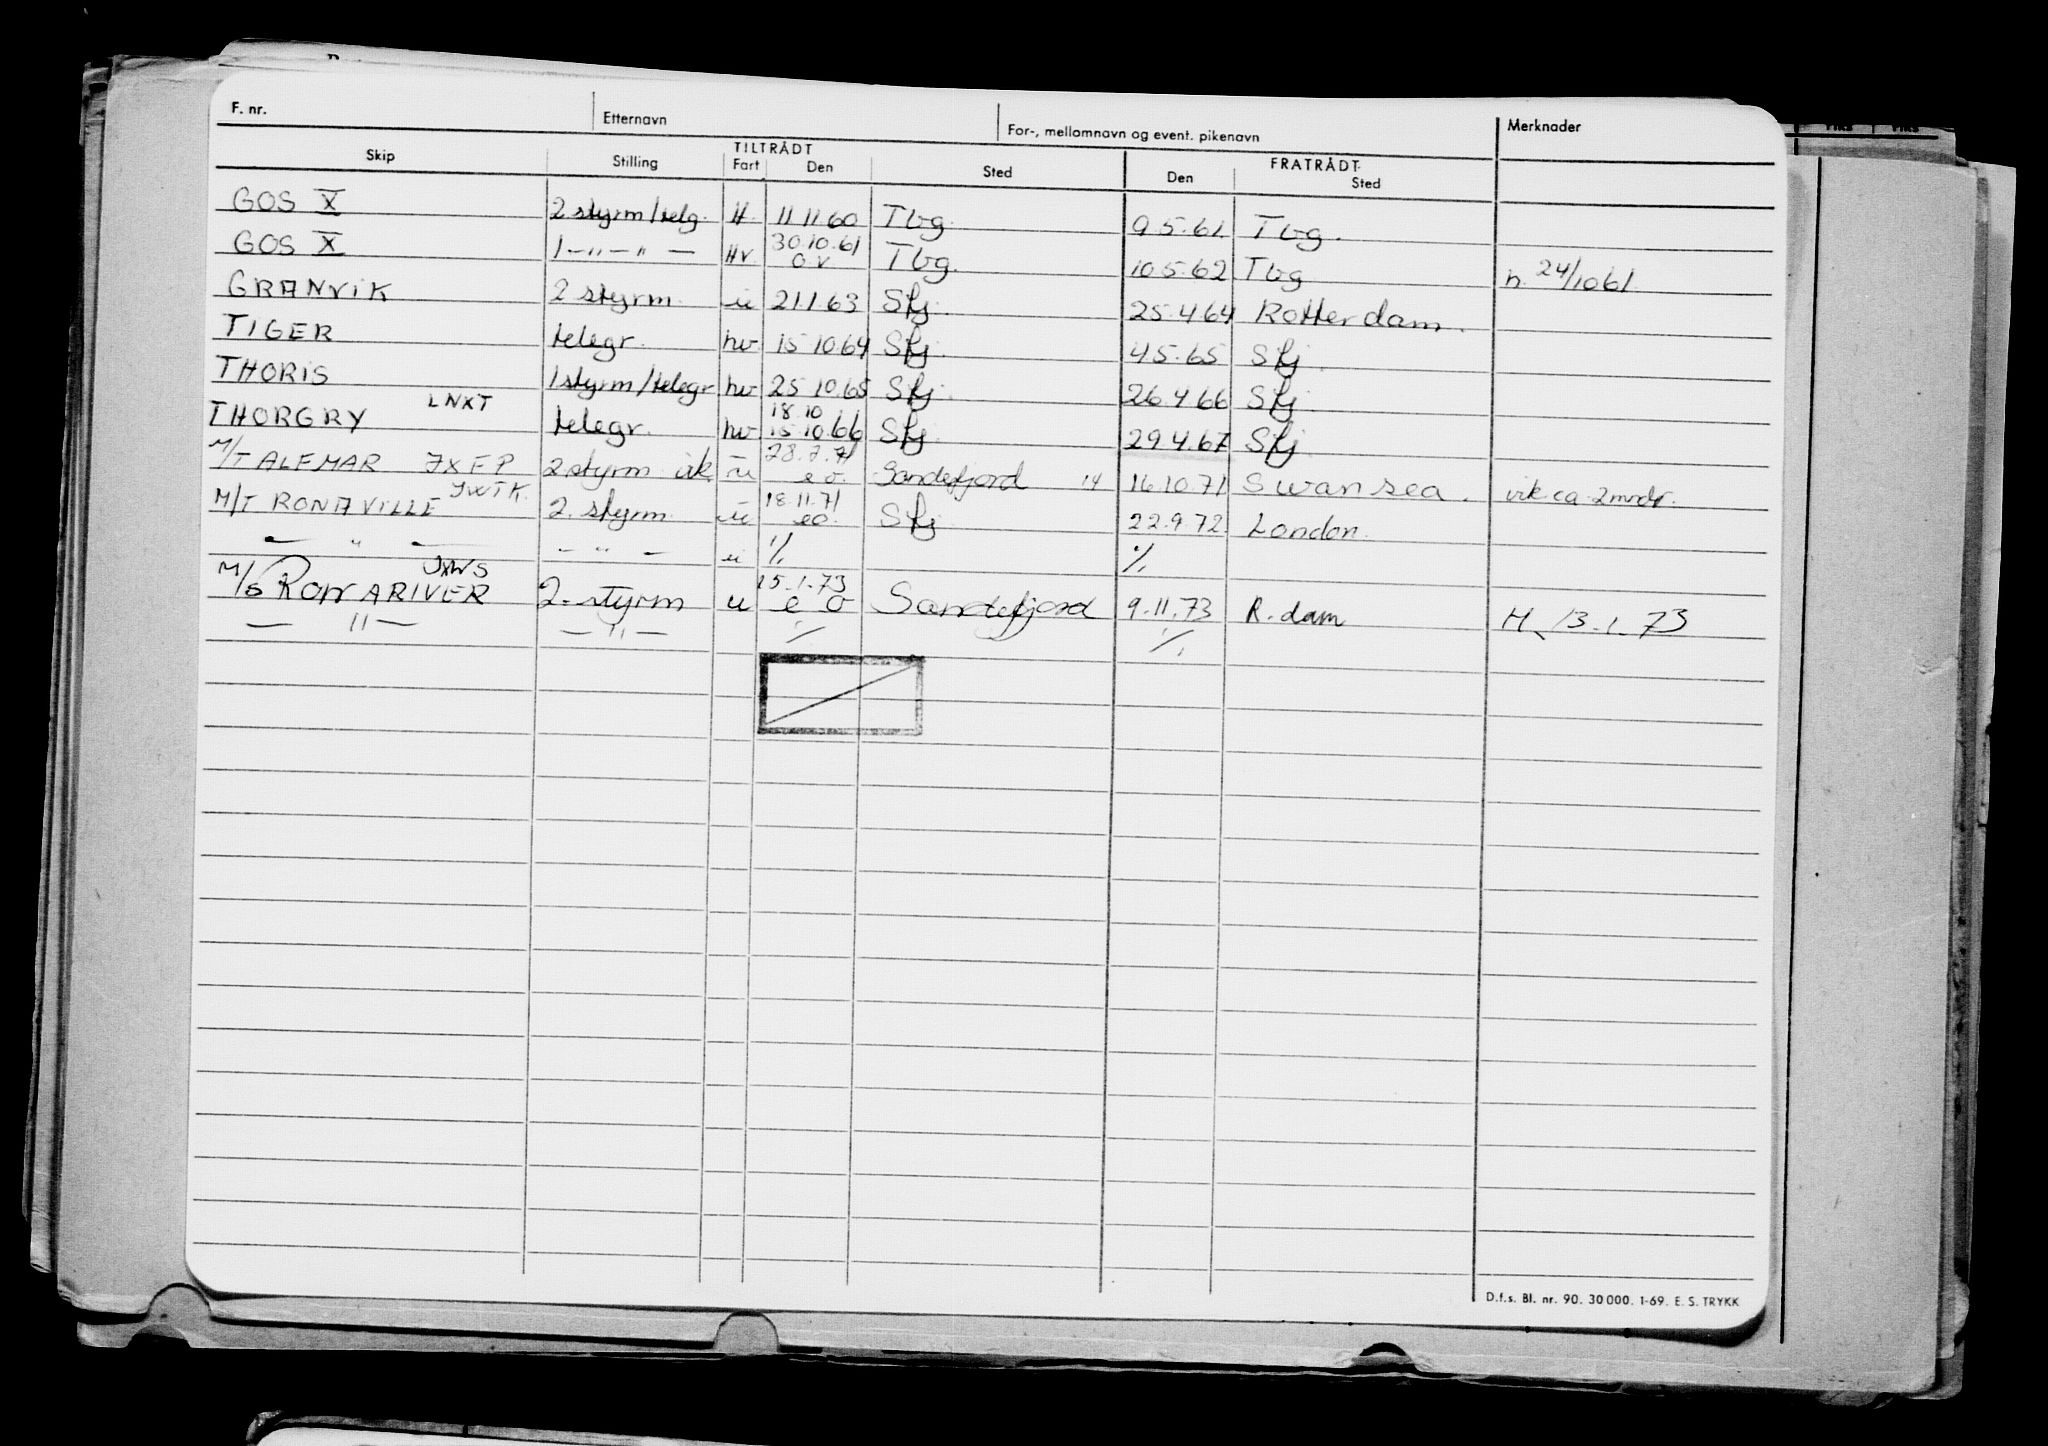 F. nr. Etternavn For-, mellomnavn og event. pikenavn Merknader
TILTRÅDT FRATRÅDT
Skip Stilling Fart Den Sted Den Sted
GOS X 2 styrm/telg. H. 11 11 60 Tbg. 9.5.61 Tbg.
GOS X 1 — " — " — Hv 30.10.61 o.v Tbg. 10.5.62 Tbg h. 24/10 61
GRANVIK 2 styrm. u 21.1.63 Sfj. 25.4 64 Rotterdam.
TIGER telegr. hv 15 10.64 Sfj. 4 5.65 Sfj.
THORIS 1 styrm/telegr hv 25 10.65 Sfj. 26.4 66 Sfj.
THORGRY LNXT telegr. hv 18.10 15 10.66 Sfj. 29.4.67 Sfj.
M/T ALEMAR JXEP 2 styrm vik u 28.7.71 e o. Sandefjord 14 16.10.71 Swansea. vik ca 2 mndr.
M/T RONAVILLE JWTK. 2. styrm u 18.11.71 eo. Sfj 22.9.72 London.
— " — – " – u ·/. ·/.
M/S RONARIVER JXWS 2. styrm u 15.1.73 e o Sandefjord 9.11.73 R.dam H. 13.1.73
— " — — " — ·/. ·/.
D.f.s. Bl. nr. 90. 30 000. 1-69. E. S. TRYKK